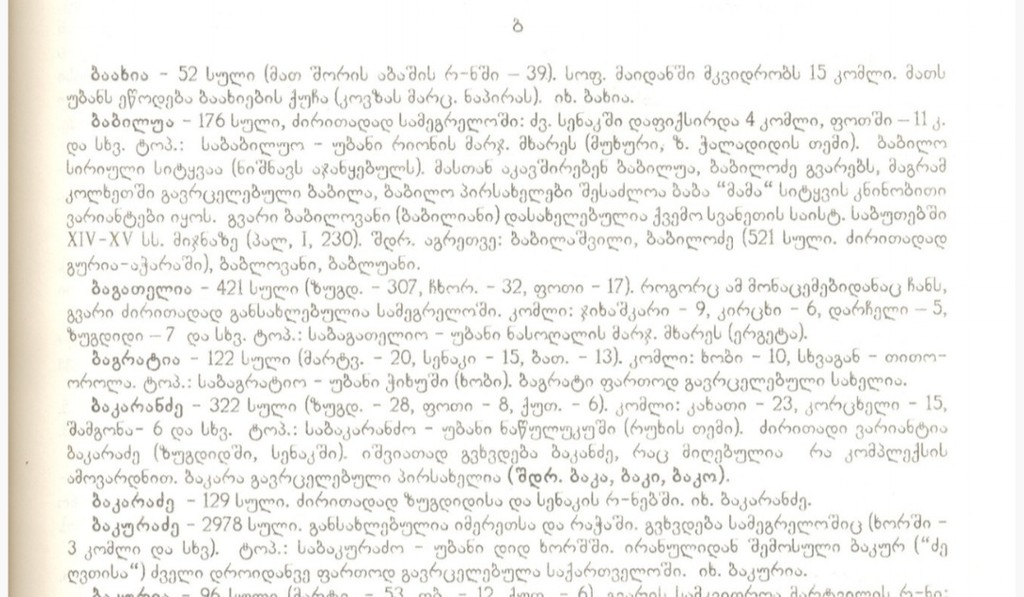 ბ
ბაახია - 52 სული (მათ შორის აბაშის რ-ნში – 39). სოფ. მაიდანში მკვიდრობს 15 კომლი. მათს
უბანს ეწოდება ბაახიების ქუჩა (კოვზას მარც. ნაპირას). იხ. ბახია.
ბაბილუა - 176 სული, ძირითადად სამეგრელოში: ძვ. სენაკში დაფიქსირდა 4 კომლი, ფოთში – 11 კ.
და სხვ. ტოპ.: საბაბილუო - უბანი რიონის მარჯ. მხარეს (მუხური, ზ. ჭალადიდის თემი). ბაბილო
სირიული სიტყვაა (ნიშნავს აჯანყებულს). მასთან აკავშირებენ ბაბილუა, ბაბილოძე გვარებს, მაგრამ
კოლხეთში გავრცელებული ბაბილა, ბაბილო პირსახელები შესაძლოა ბაბა "მამა" სიტყვის კნინობითი
ვარიანტები იყოს. გვარი ბაბილოვანი (ბაბილიანი) დასახელებულია ქვემო სვანეთის საისტ. საბუთებში
XIV-XV სს. მიჯნაზე (პალ, I, 230). შდრ. აგრეთვე: ბაბილაშვილი, ბაბილოძე (521 სული. ძირითადად
გურია-აჭარაში), ბაბლოვანი, ბაბლუანი.
ბაგათელია - 421 სული (ზუგდ. - 307, ჩხორ. - 32, ფოთი - 17). როგორც ამ მონაცემებიდანაც ჩანს,
გვარი ძირითადად განსახლებულია სამეგრელოში. კომლი: ჯიხაშკარი - 9, კირცხი - 6, დარჩელი – 5,
ზუგდიდი – 7 და სხვ. ტოპ.: საბაგათელიო - უბანი ნასოღალის მარჯ. მხარეს (ერგეტა).
ბაგრატია - 122 სული (მარტვ. - 20, სენაკი - 15, ბათ. - 13). კომლი: ხობი - 10, სხვაგან - თითო-
ოროლა. ტოპ.: საბაგრატიო - უბანი ჭიხუში (ხობი). ბაგრატი ფართოდ გავრცელებული სახელია.
ბაკარანძე - 322 სული (ზუგდ. - 28, ფოთი - 8, ქუთ. - 6). კომლი: კახათი - 23, კორცხელი - 15,
შამგონა- 6 და სხვ. ტოპ.: საბაკარანძო - უბანი ნაწულუკუში (რუხის თემი). ძირითადი ვარიანტია
ბაკარაძე (ზუგდიდში, სენაკში). იშვიათად გვხვდება ბაკანძე, რაც მიღებულია რა კომპლექსის
ამოვარდნით. ბაკარა გავრცელებული პირსახელია (შდრ. ბაკა, ბაკი, ბაკო).
ბაკარაძე - 129 სული. ძირითადად ზუგდიდისა და სენაკის რ-ნებში. იხ. ბაკარანძე.
ბაკურაძე - 2978 სული. განსახლებულია იმერეთსა და რაჭაში. გვხვდება სამეგრელოშიც (ხორში -
3 კომლი და სხვ). ტოპ.: საბაკურაძო - უბანი დიდ ხორშში. ირანულიდან შემოსული ბაკურ ("ძე
ღვთისა") ძველი დროიდანვე ფართოდ გავრცელებულა საქართველოში. იხ. ბაკურია.
ბაკურია - 96 სული (მარტვ. - 53, თბ. - 12, ქუთ. - 6). გვარის სამკვიდროა მარტვილის რ-ნი: